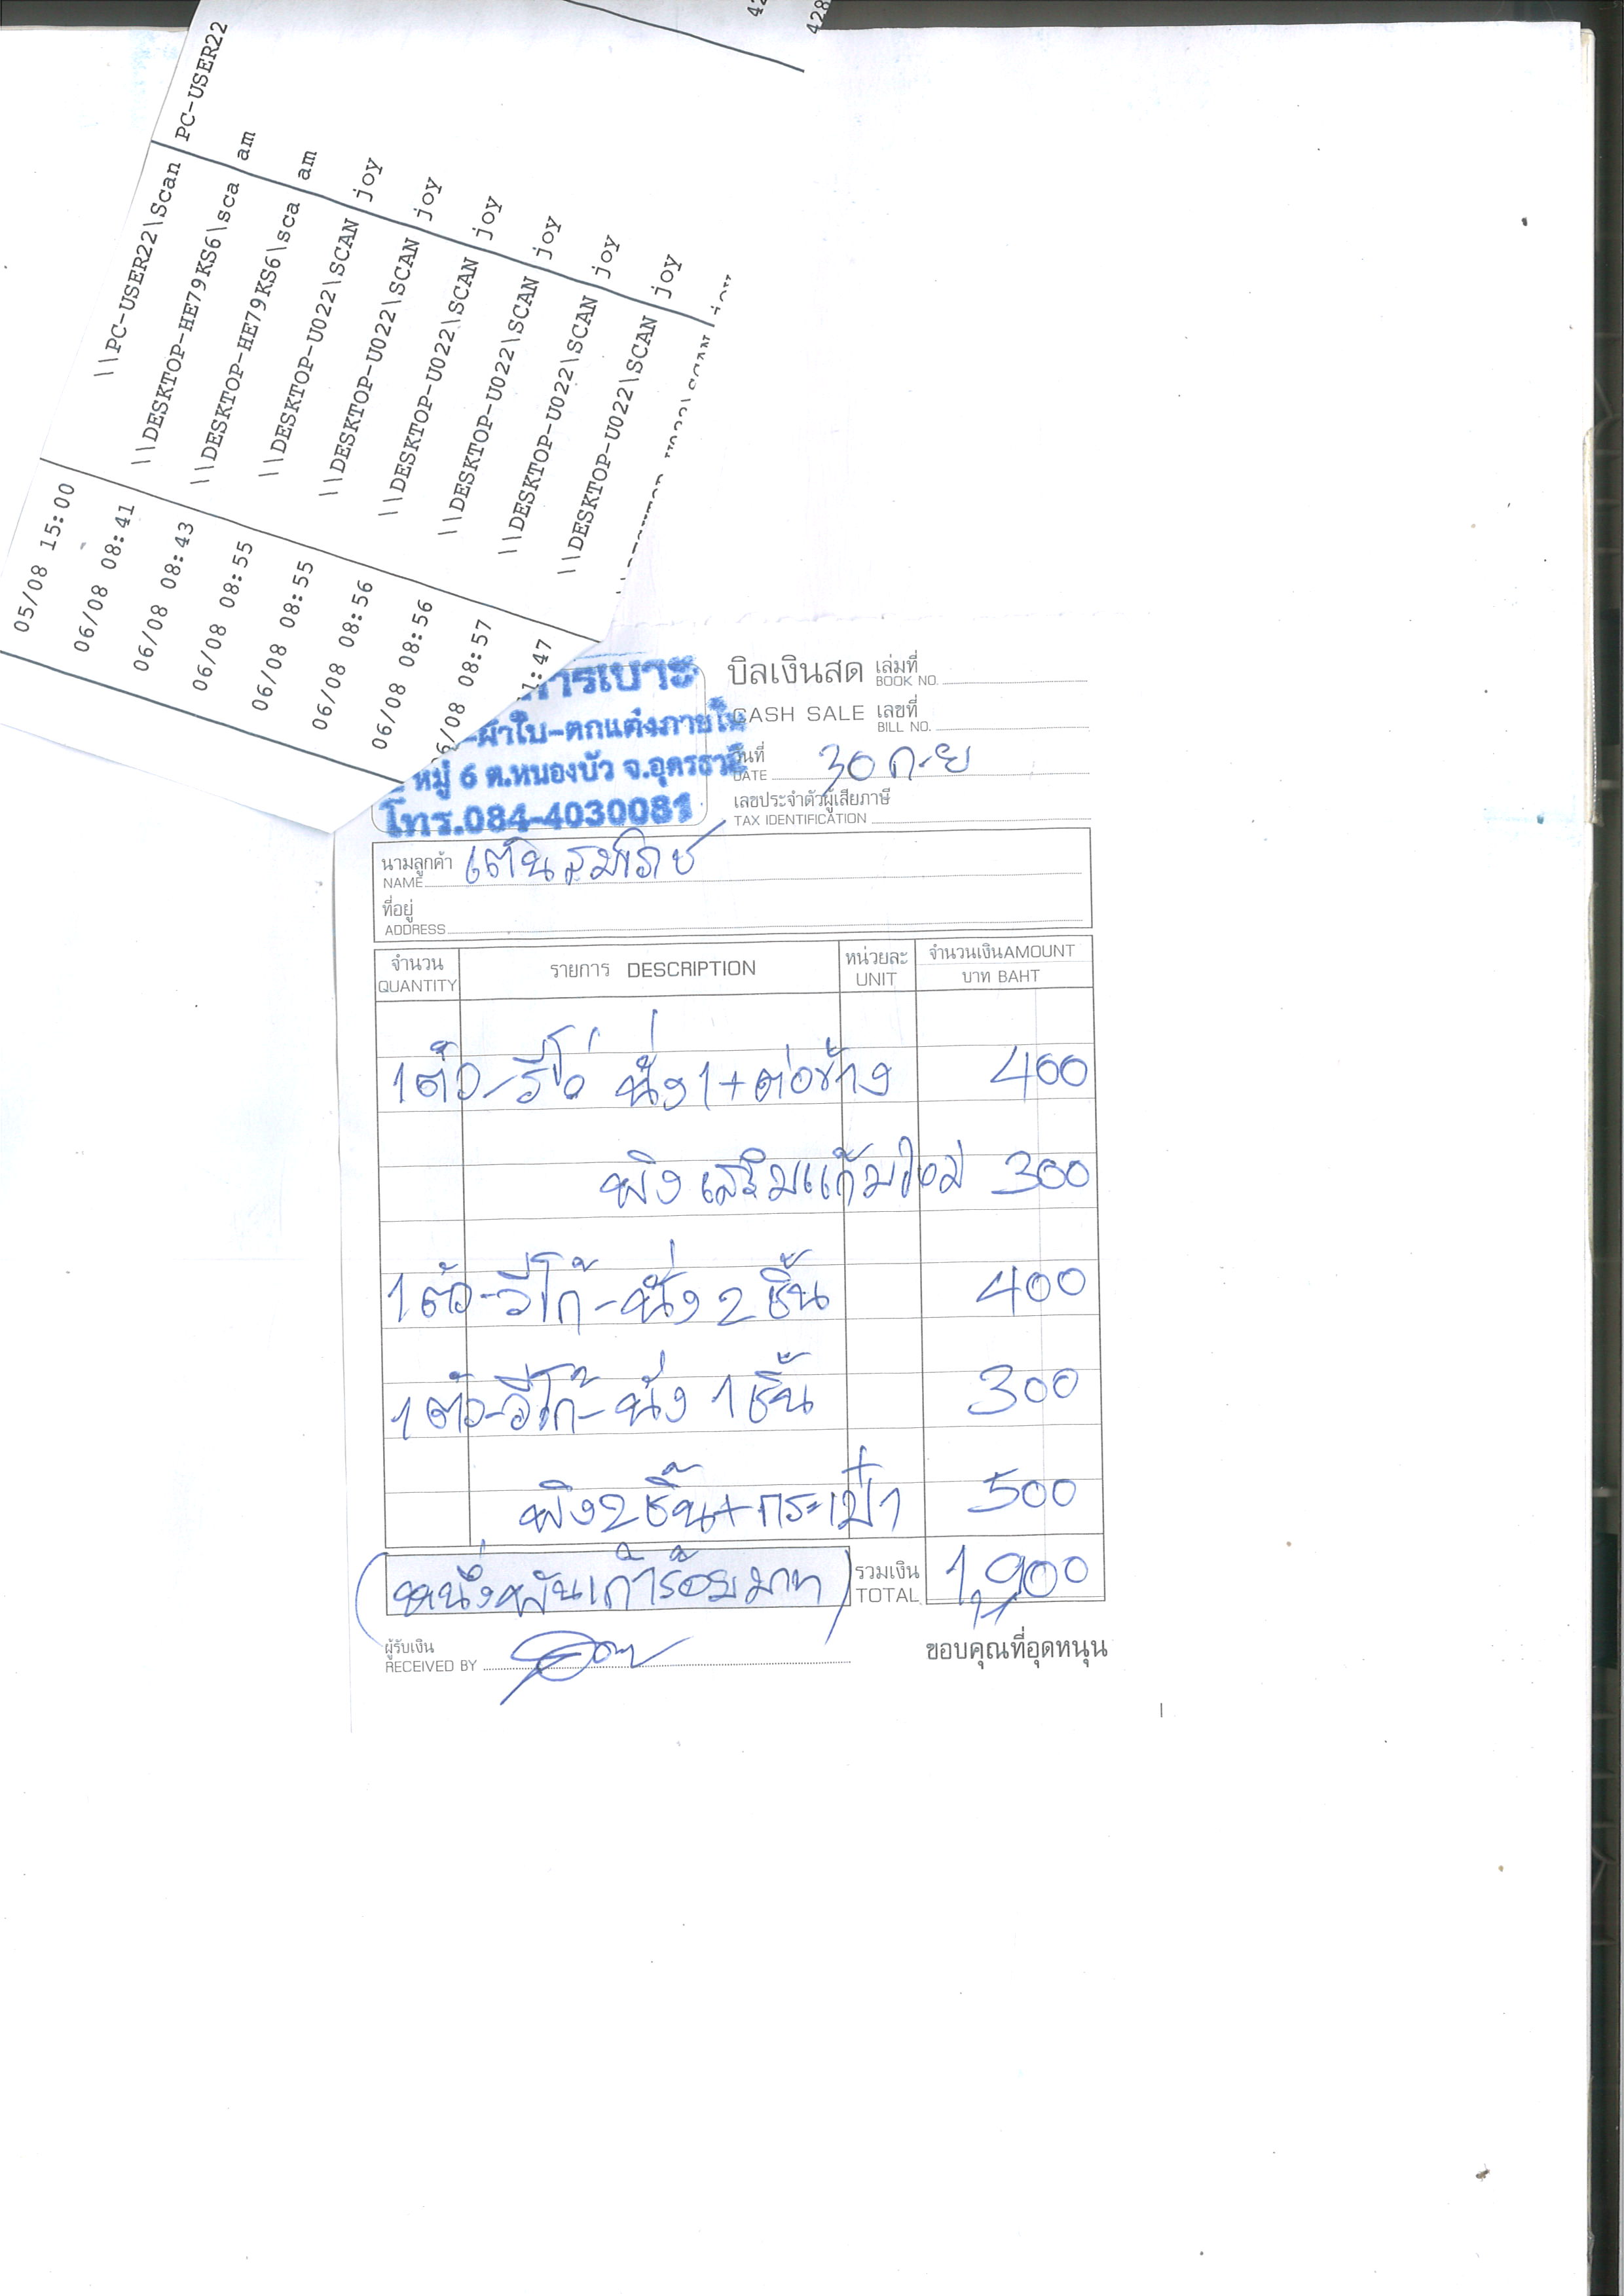 PC-USER22
\\PC-USER22\Scan
am
\\DESKTOP-HE79KS6\sca
am
\\DESKTOP-HE79KS6\sca
joy
\\DESKTOP-U022\SCAN
joy
\\DESKTOP-U022\SCAN
joy
\\DESKTOP-U022\SCAN
joy
\\DESKTOP-U022\SCAN
joy
\\DESKTOP-U022\SCAN
joy
\\DESKTOP-U022\SCAN
05/08 15:00
06/08 08:41
06/08 08:43
06/08 08:55
06/08 08:55
06/08 08:56
06/08 08:56
6/08 08:57
1:47
ารเบาะ
-ผ้าใบ-ตกแต่งภายใน
หมู่ 6 ต.หนองบัว จ.อุดรธานี
โทร.084-4030081
บิลเงินสด เล่มที่
BOOK NO.
CASH SALE เลขที่
BILL NO.
วันที่ 30 ก.ย
DATE
เลขประจำตัวผู้เสียภาษี
TAX IDENTIFICATION
นามลูกค้า
NAME
ที่อยู่
ADDRESS
จำนวน รายการ DESCRIPTION หน่วยละ จำนวนเงินAMOUNT
QUANTITY UNIT บาท BAHT
1ตัว นั่ง 1+ต่อข้าง 400
พิง เสริมแก้มใหม่ 300
1ตัว-วีโก้-นั่ง 2 ชิ้น 400
1ตัว-วีโก้-นั่ง 1 ชิ้น 300
พิง 2 ชิ้น+กระเป๋า 500
(หนึ่งพันเก้าร้อยบาท) รวมเงิน 1,900
TOTAL
ผู้รับเงิน
RECEIVED BY
ขอบคุณที่อุดหนุน